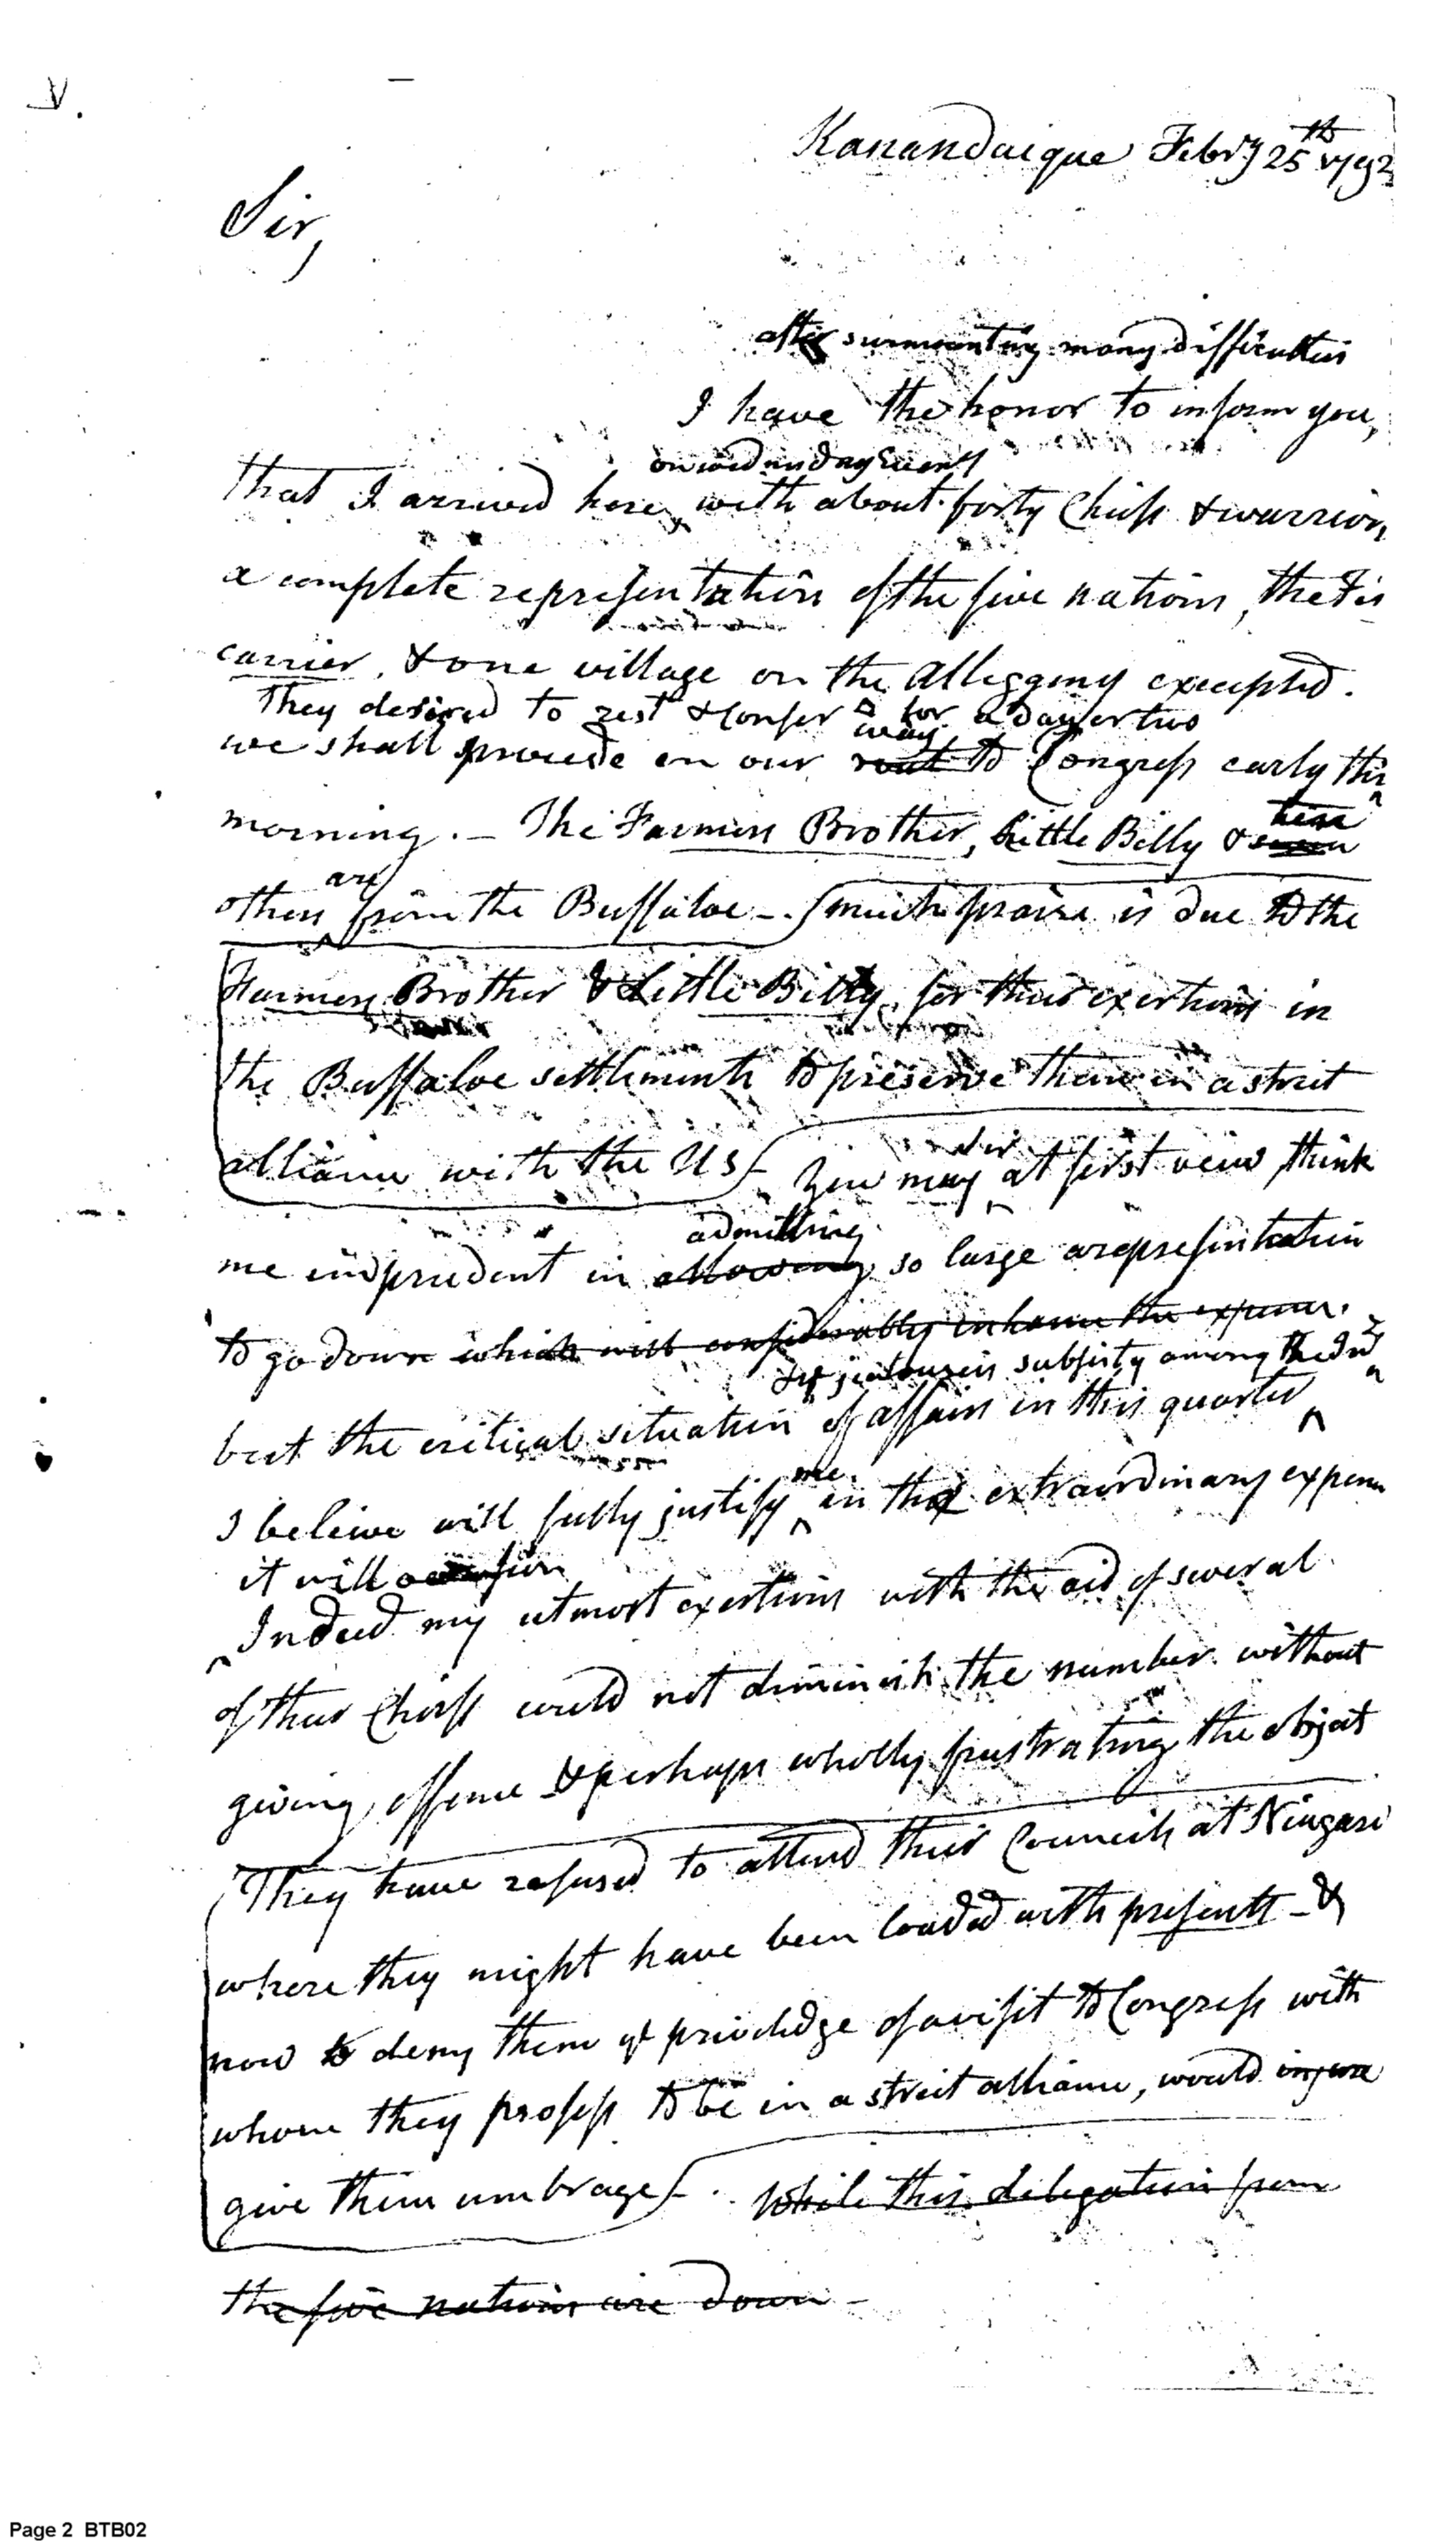 V.
Kanandaique Febry 25th 1792
Sir,
after surmounting many difficulties
I have the honor to inform you,
on wednesday Eveng
that I arrived here, with about forty Chiefs & warriors
a complete representation of the five nations, the Fis
carrier, & one village on the Alleggany excepted.
They desired to rest & confer for a day or two
way
we shall proceede on our rout to Congress early this
morning. — The Farmers Brother, Little Billy &
are
others from the Buffaloe — much praise is due to the
Farmers Brother & Little Billy, for their exertions in
the Buffaloe settlements to preserve them in a strict
alliance with the US
sir
You may at first veiw, think
admitting
me imprudent in allowing so large a representation
to go down which will considerably enhance the expence.
jealousies subsistg among the Ind
but the critical situation of affairs in this quarter
me
I beleive will fully justify in the extraordinary expence
it will occasion
Indeed my utmost exertions with the aid of several
of their Chiefs could not diminish the number without
giving offence & perhaps wholly frustrating the object
They have refused to attend their Councils at Niagara
where they might have been loaded with presents — &
now to deny them ye priviledge of a visit to Congress with
whom they profess to be in a strict alliance, would injure
give them umbrage. While this delegation from
the five nations are down —
Page 2 BTB02